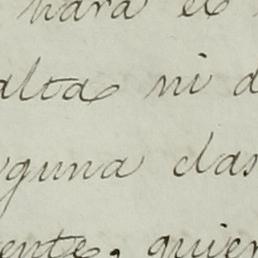 hara el
alta ni d
guna clas
ente, quien